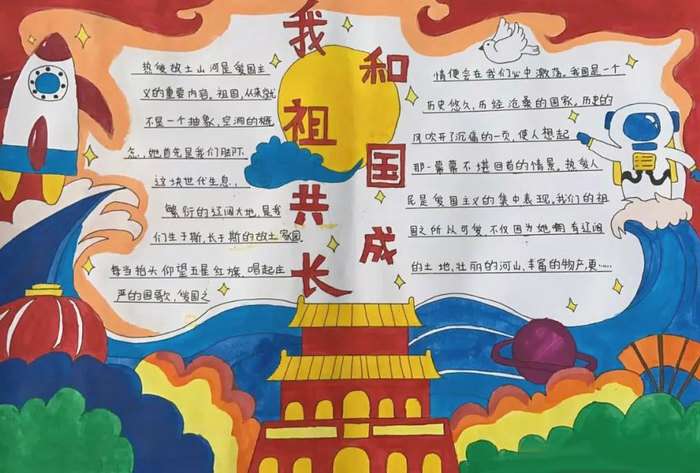 我和祖国共成长
热爱故土山河是爱国主
义的重要内容。祖国,从来就
不是一个抽象,空洞的概
念,她首先是我们脚下
这块世代生息、
繁衍的辽阔大地,是我
们生于斯,长于斯的故土家园
每当抬头仰望五星红旗,唱起庄
严的国歌,爱国之
情便会在我们心中激荡。我国是一个
历史悠久,历经沧桑的国家,历史的
风吹开了沉痛的一页,使人想起
那一幕幕不堪回首的情景,热爱人
民是爱国主义的集中表现,我们的祖
国之所以可爱,不仅因为她拥有辽阔
的土地,壮丽的河山,丰富的物产,更……